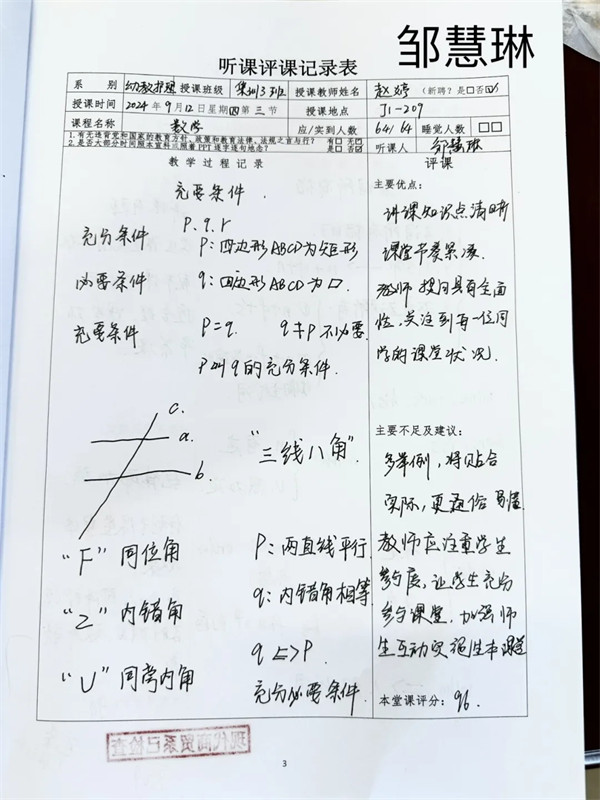 邹慧琳
听课评课记录表
系 别 幼教护理 授课班级 集训3班 授课教师姓名 赵婷 (新聘?是□否☑)
授课时间 2024年9月12日星期四第三节 授课地点 J1-209
课程名称 数学 应/实到人数 64/64 睡觉人数 □□
1.有无违背党和国家的教育方针、政策和教育法律、法规之言与行? 有□ 无☑
2.是否大部分时间照本宣科或照着PPT逐字逐句地念? 是□ 否☑
听课人 邹慧琳
教学过程记录
充要条件.
P.q.r
充分条件 P:四边形ABCD为矩形
必要条件 q:四边形ABCD为□.
充要条件 P=q. q≠P 不必要.
P叫q的充分条件.
c.
a.
b.
"三线八角".
"F"同位角 P:两直线平行.
"Z"内错角 q:内错角相等
q<=>P.
"U"同旁内角 充分必要条件.
评课
主要优点:
讲课知识点清晰
课堂节奏紧凑.
教师提问具有全面
性,关注到每一位同
学的课堂状况.
主要不足及建议:
多举例,将贴合
实际,更通俗易懂
教师应注重学生
参与度,让学生充分
参与课堂,加强师
生互动实现生本课堂
本堂课评分:96.
现代商贸系已检查
3